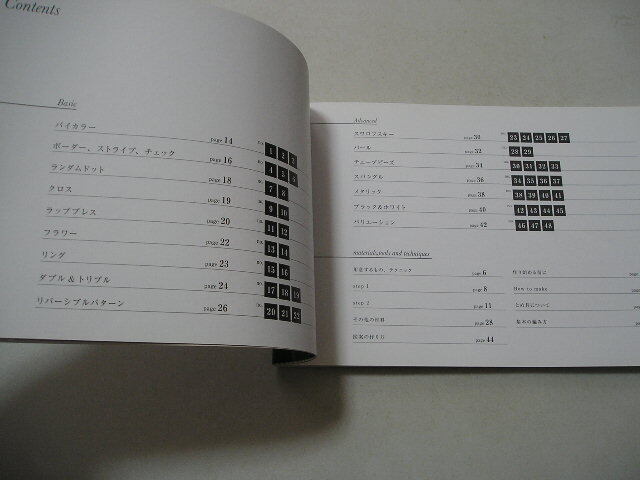 Contents
Basic
バイカラー page 14 no. 1 2 3
ボーダー、ストライプ、チェック page 16 no. 4 5 6
ランダムドット page 18 no. 7 8
クロス page 19 no. 9 10
ラップブレス page 20 no. 11 12
フラワー page 22 no. 13 14
リング page 23 no. 15 16
ダブル & トリプル page 24 no. 17 18 19
リバーシブルパターン page 26 no. 20 21 22
Advanced
スワロフスキー page 30 no. 23 24 25 26 27
パール page 32 no. 28 29
チェーブビーズ page 34 no. 30 31 32 33
スパングル page 36 no. 34 35 36 37
メタリック page 38 no. 38 39 40 41
ブラック&ホワイト page 40 no. 42 43 44 45
バリエーション page 42 no. 46 47 48
materials,tools and techniques
用意するもの、テクニック page 6
step 1 page 8
step 2 page 11
その他の材料 page 28
図案の作り方 page 44
作り始める前に page
How to make page
とめ具について page
基本の編み方 page